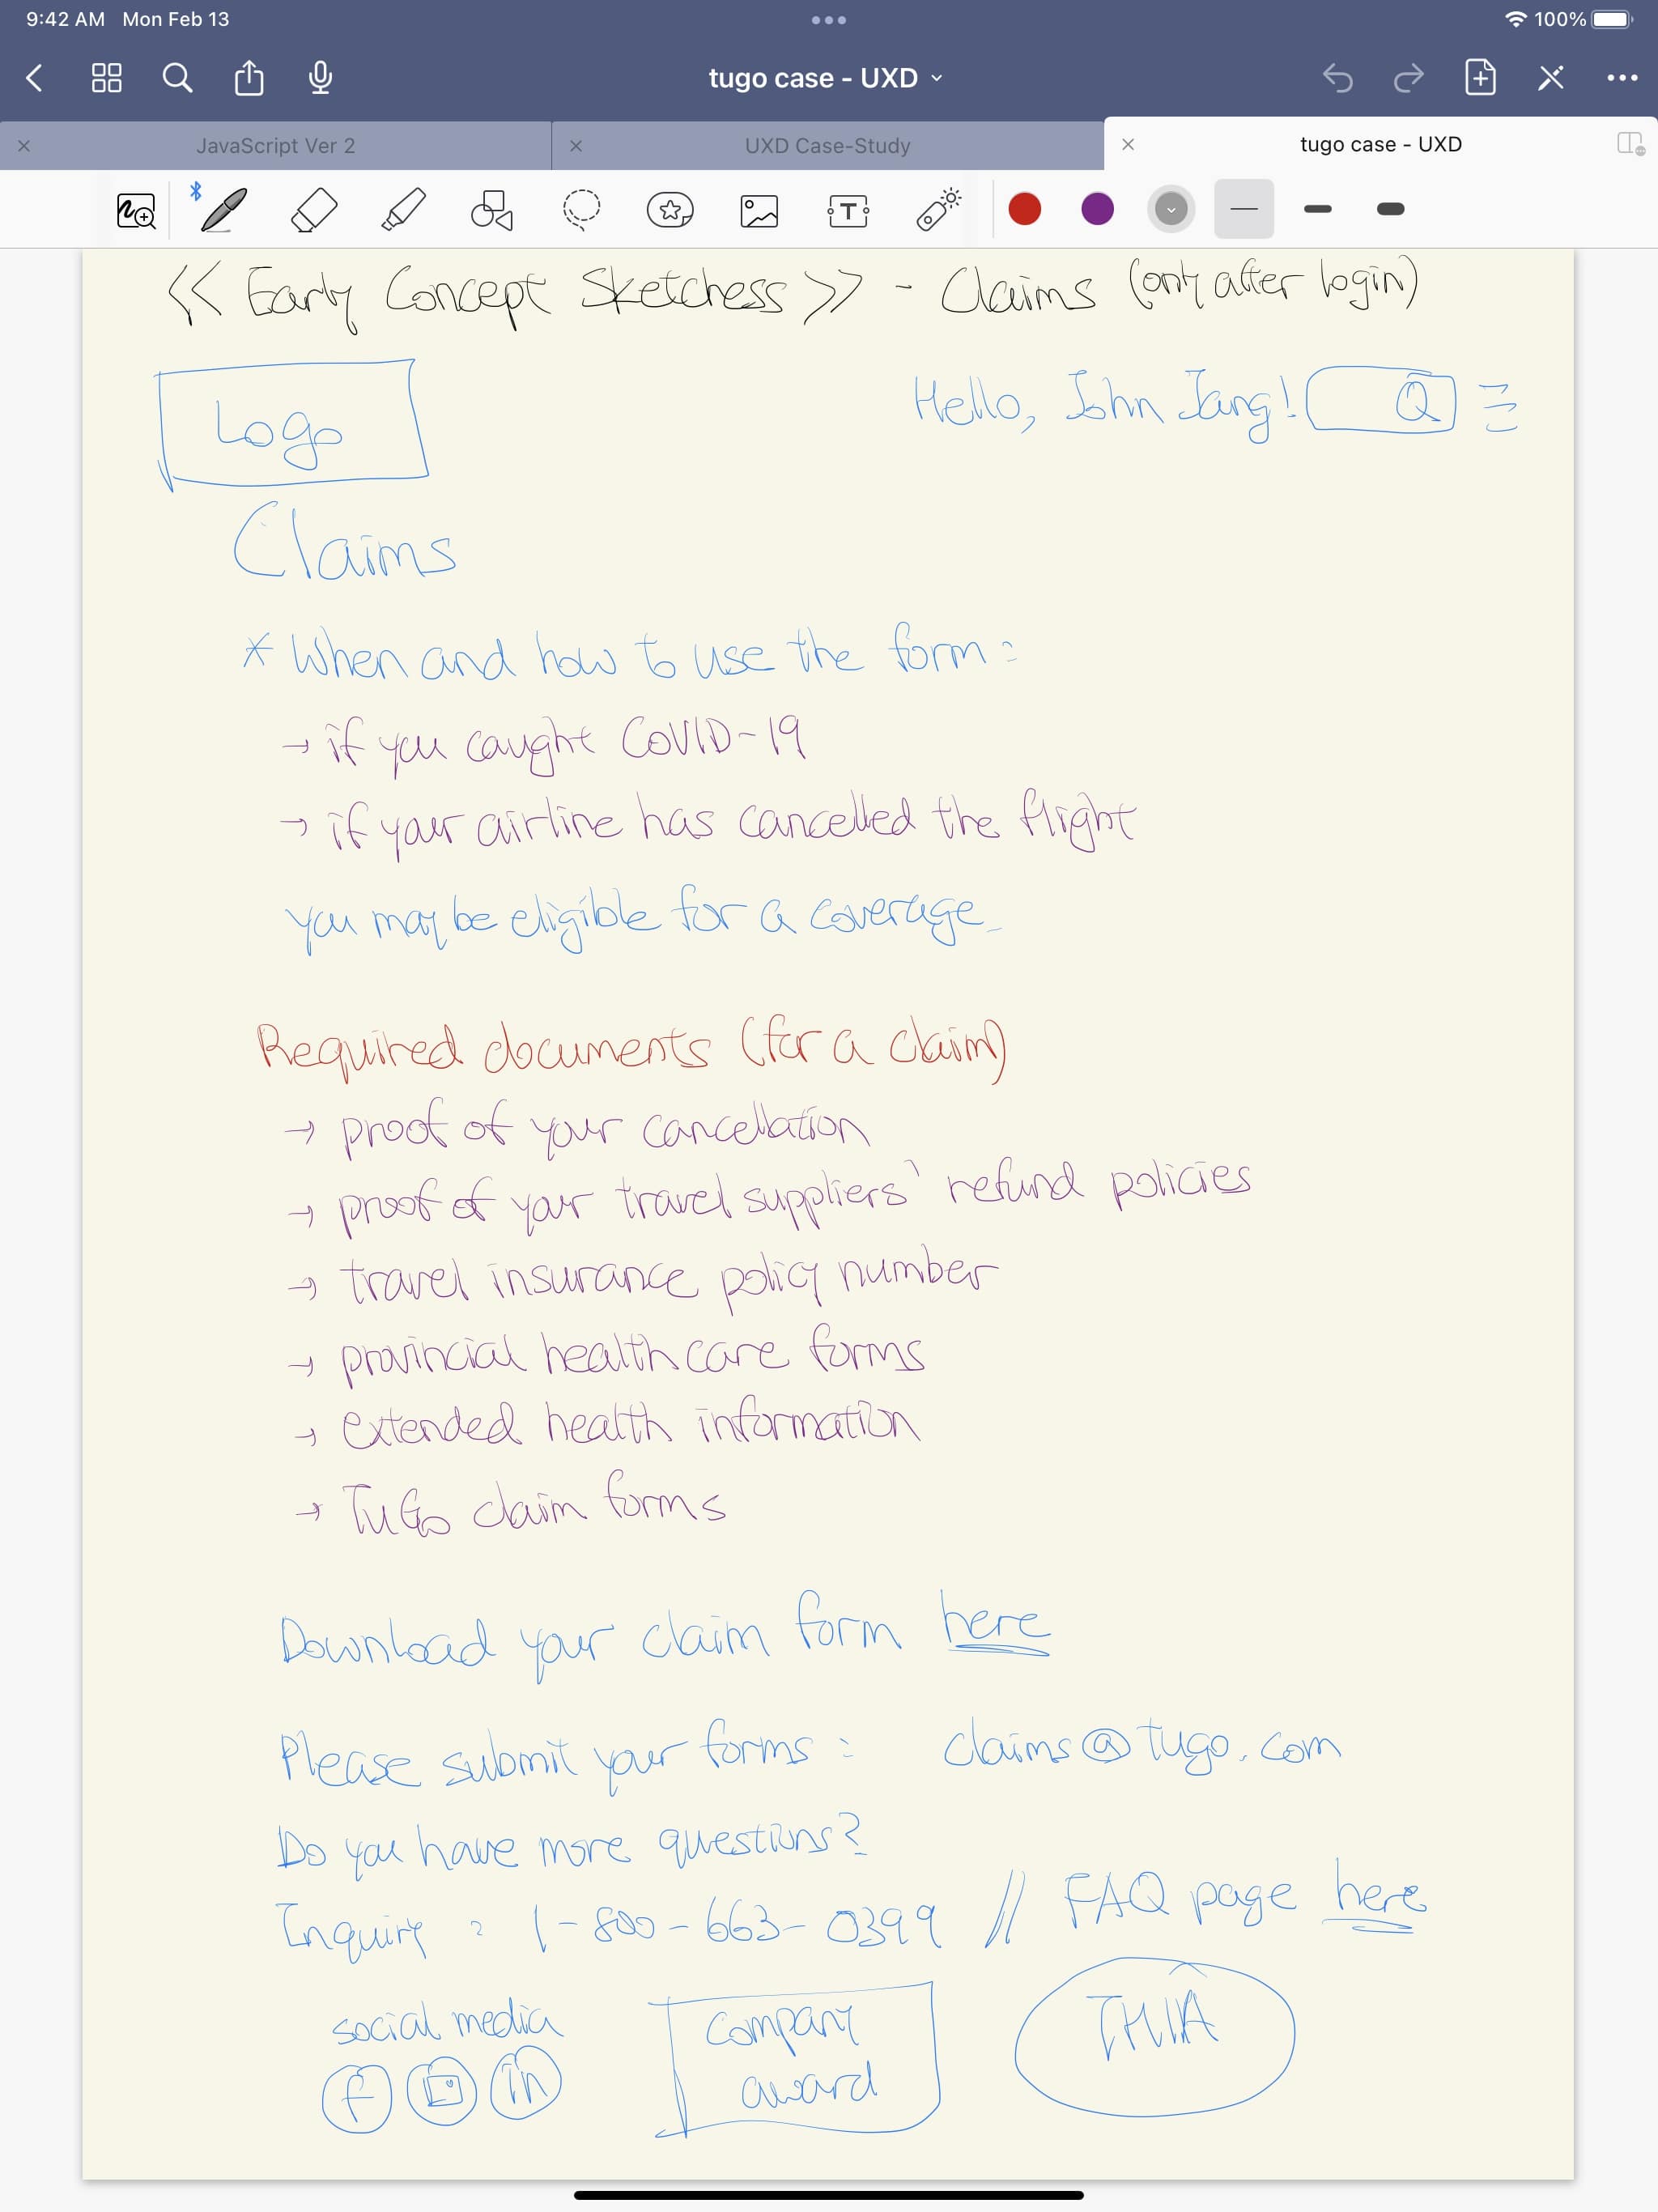 9:42 AM Mon Feb 13
100%
tugo case - UXD
JavaScript Ver 2
UXD Case-Study
tugo case - UXD
<< Early Concept Sketchess >> - Claims (only after login)
Logo
Hello, John Jang!
Claims
* When and how to use the form:
→ if you caught COVID-19
→ if your airline has cancelled the flight
you may be eligible for a coverage.
Required documents (for a claim)
→ proof of your cancellation
→ proof of your travel suppliers' refund policies
→ travel insurance policy number
→ provincial healthcare forms
→ extended health information
→ TuGo claim forms
Download your claim form here
Please submit your forms : claims@tugo.com
Do you have more questions?
Inquiry : 1-800-663-0399 // FAQ page here
social media
f in
Company
award
THIA